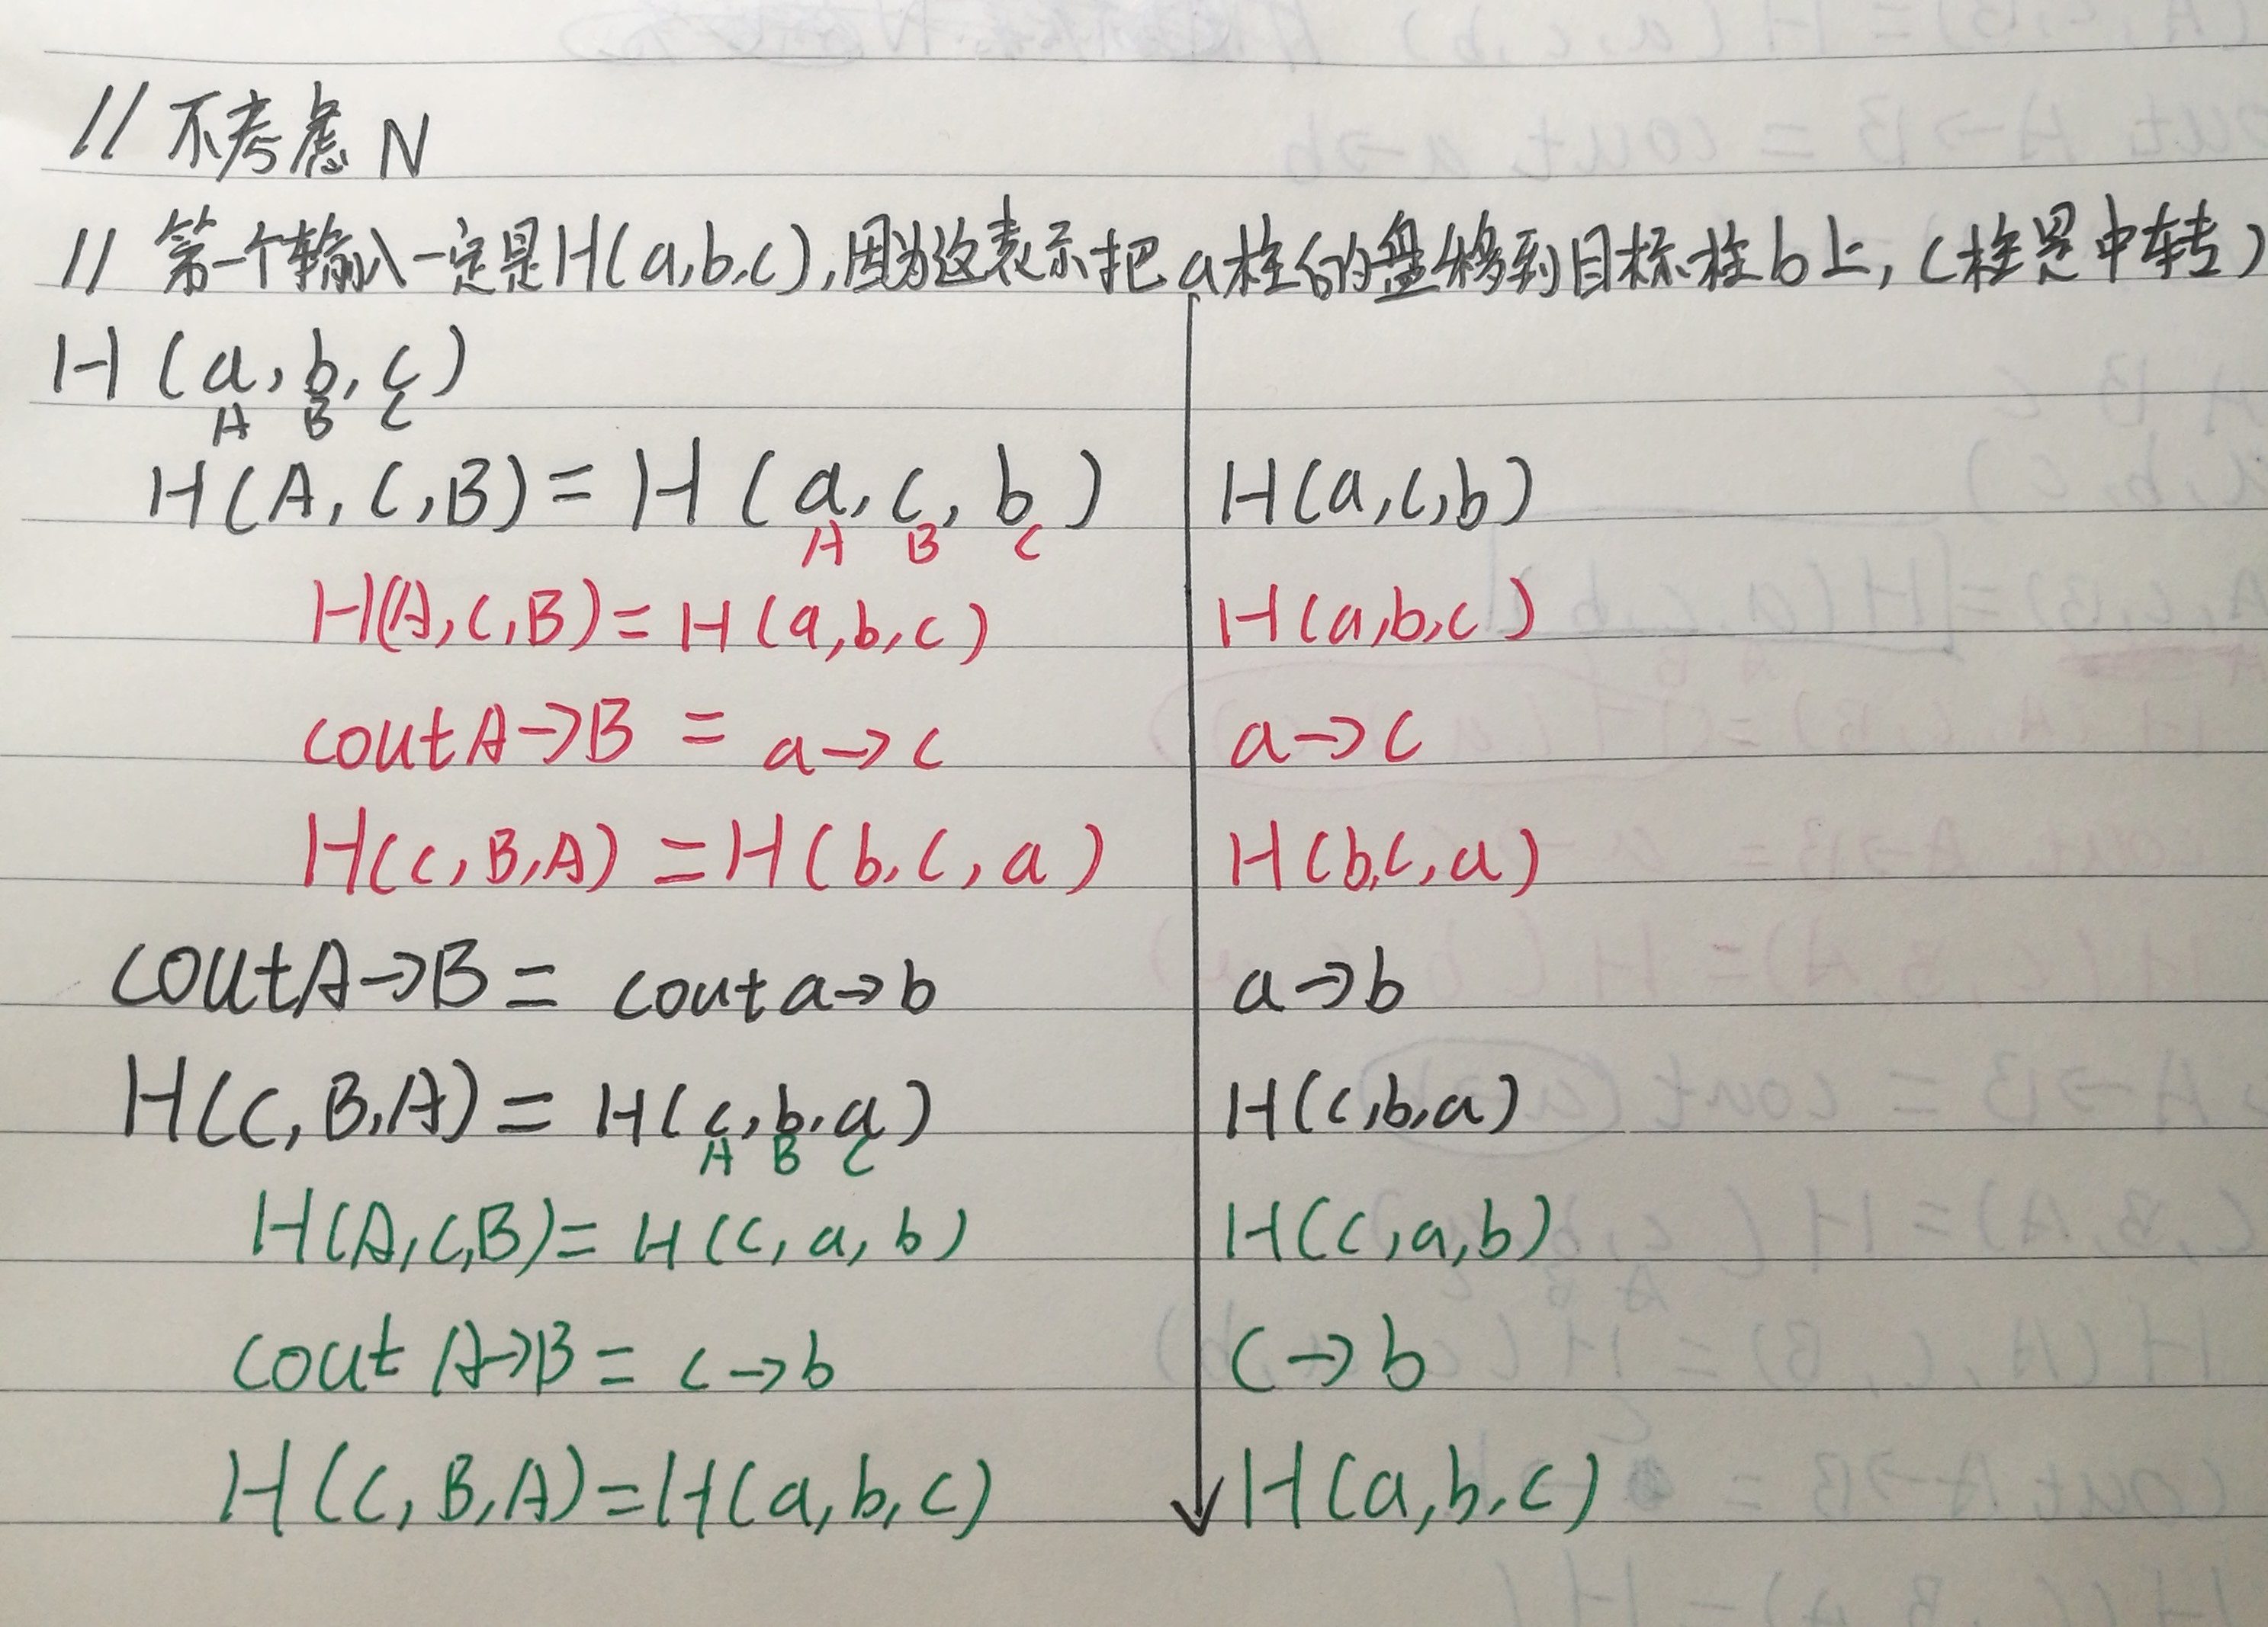 // 不考虑 N
// 第一个输入一定是H(a,b,c),因为这表示把a柱的盘移到目标柱b上,c柱是中转)
H(a,b,c)
A B C
H(A,C,B)=H(a,c,b) H(a,c,b)
A B C
H(A,C,B)=H(a,b,c) H(a,b,c)
cout A→B = a→c a→c
H(C,B,A)=H(b,c,a) H(b,c,a)
cout A→B = cout a→b a→b
H(C,B,A)=H(c,b,a) H(c,b,a)
A B C
H(A,C,B)=H(c,a,b) H(c,a,b)
cout A→B = c→b c→b
H(C,B,A)=H(a,b,c) H(a,b,c)